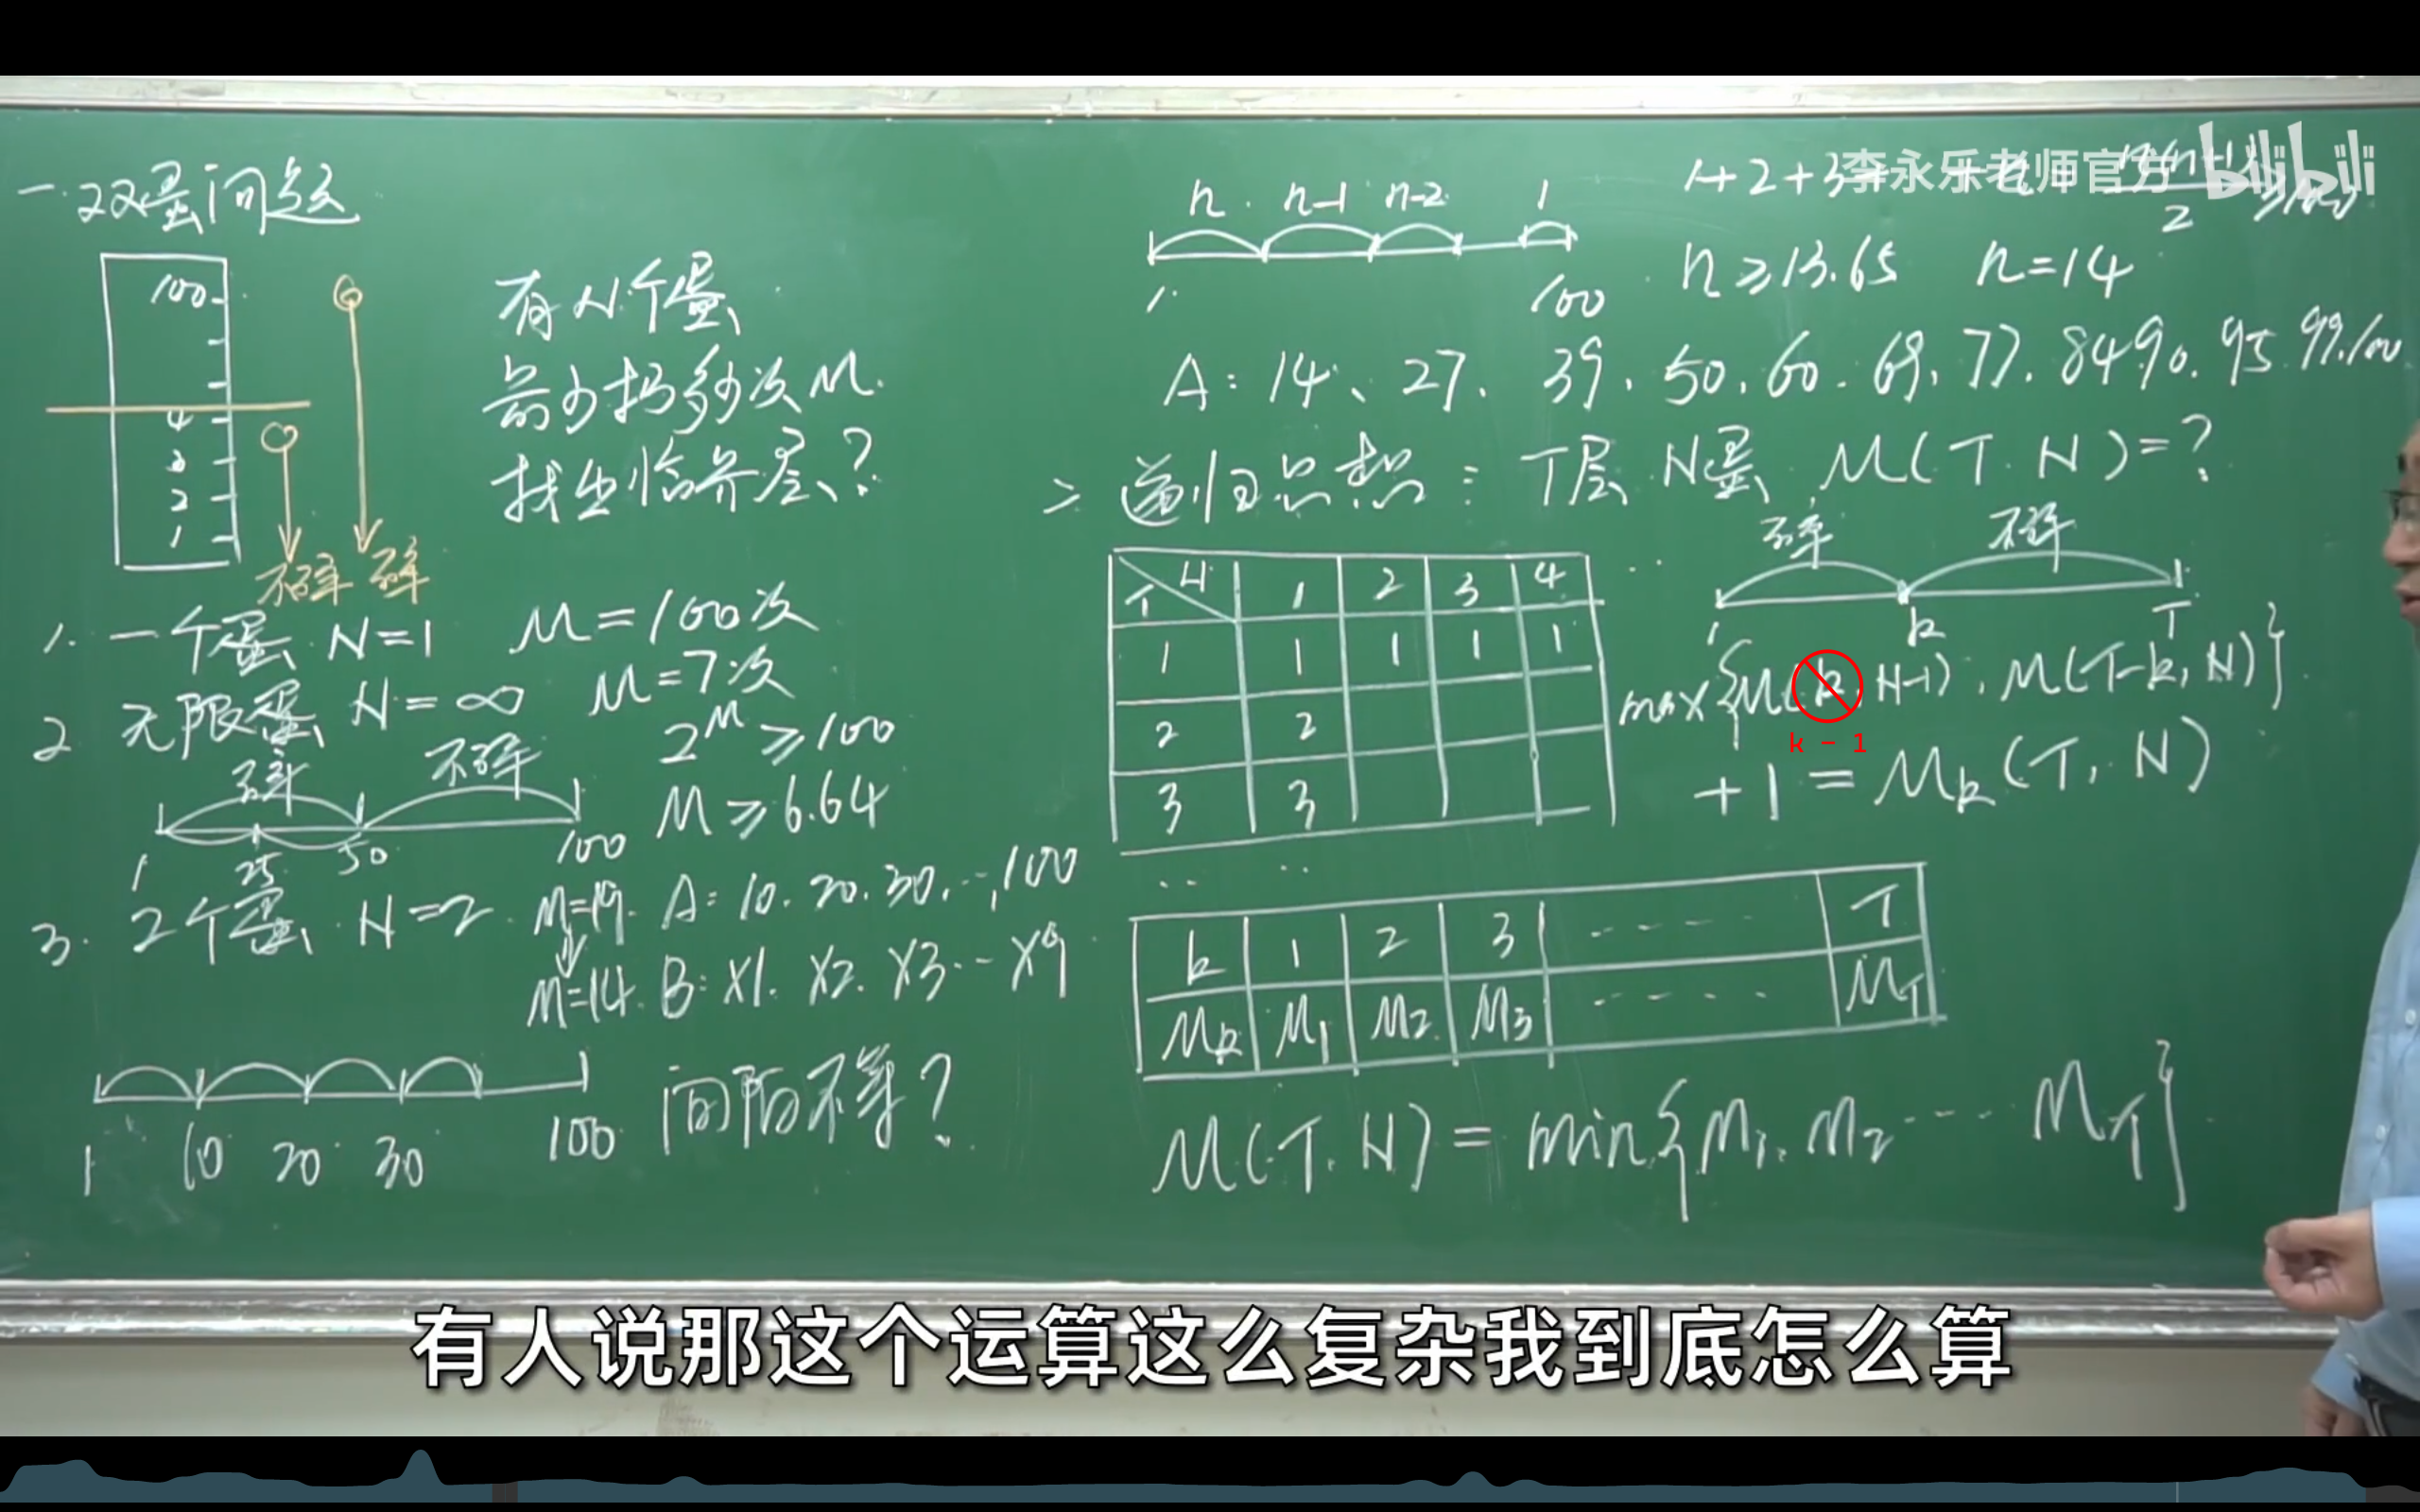 一.双蛋问题
100
4
3
2
1
不碎 碎
有N个蛋
最少扔多少次M.
找出临界层?
1. 一个蛋 N=1 M=100次
2. 无限蛋 N=∞ M=7次
2^M ≥100
M≥6.64
碎 不碎
1 25 50 100
3. 2个蛋 N=2. M=19. A: 10. 20. 30. …, 100
M=14. B: X1. X2. X3. … X9
1 10 20 30 100 间隔不等?
n n-1 n-2 1
1 100
1+2+3+
2
n≥13.65 n=14
A: 14、27、39、50、60、69、77、84、90、95、99、100
二 递归思想: T层 N蛋 M(T.N)=?
碎 不碎
1 k T
T N 1 2 3 4 ..
1 1 1 1 1
2 2
3 3
.. ..
max{M(k, N-1), M(T-k, N)}
k - 1
+1 = Mk(T, N)
k 1 2 3 ---- T
Mk M1 M2 M3 ---- MT
M(T.N) = min{M1, M2 ---- MT}
李永乐老师官方 bilibili
有人说那这个运算这么复杂我到底怎么算